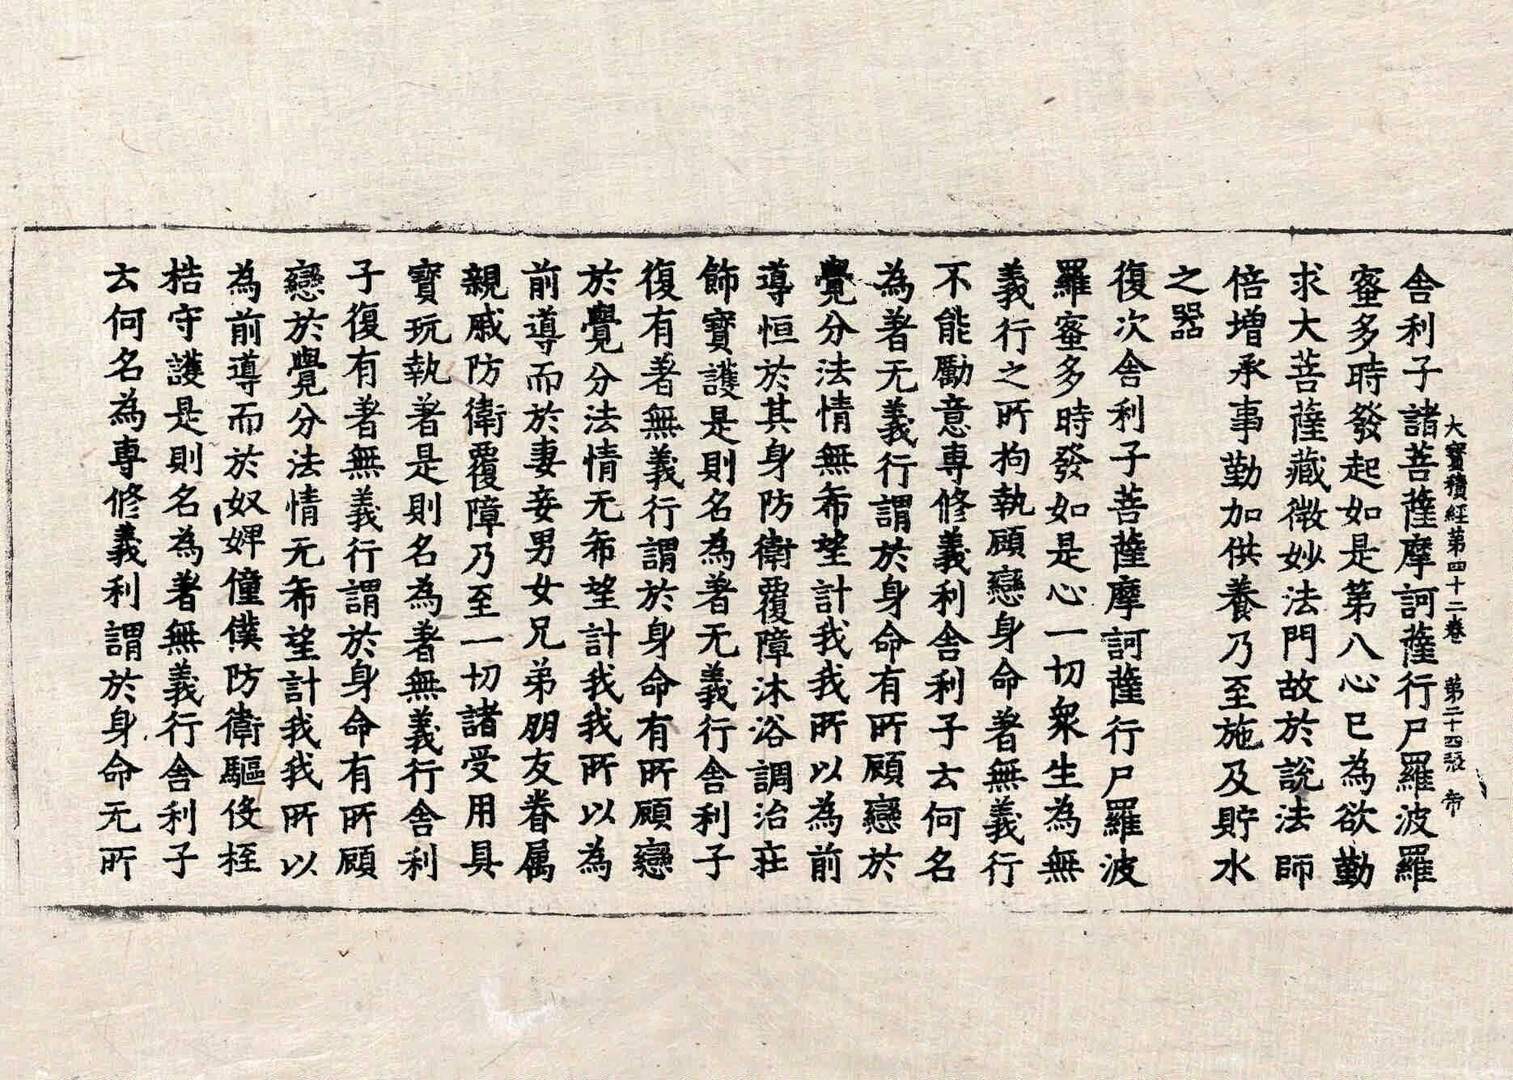 大寶積經第四十二卷 第二十四張 帝
舍利子諸菩薩摩訶薩行尸羅波羅
蜜多時發起如是第八心已為欲勤
求大菩薩藏微妙法門故於說法師
倍增承事勤加供養乃至施及貯水
之器
復次舍利子菩薩摩訶薩行尸羅波
羅蜜多時發如是心一切衆生為無
義行之所拘執顧戀身命著無義行
不能勵意專修義利舍利子云何名
為著无義行謂於身命有所顧戀於
覺分法情無希望計我我所以為前
導恒於其身防衛覆障沐浴調治莊
飾寶護是則名為著无義行舍利子
復有著無義行謂於身命有所顧戀
於覺分法情无希望計我我所以為
前導而於妻妾男女兄弟朋友眷属
親戚防衛覆障乃至一切諸受用具
寶玩執著是則名為著無義行舍利
子復有著無義行謂於身命有所顧
戀於覺分法情无希望計我我所以
為前導而於奴婢僮僕防衛驅伇桎
梏守護是則名為著無義行舍利子
云何名為專修義利謂於身命无所